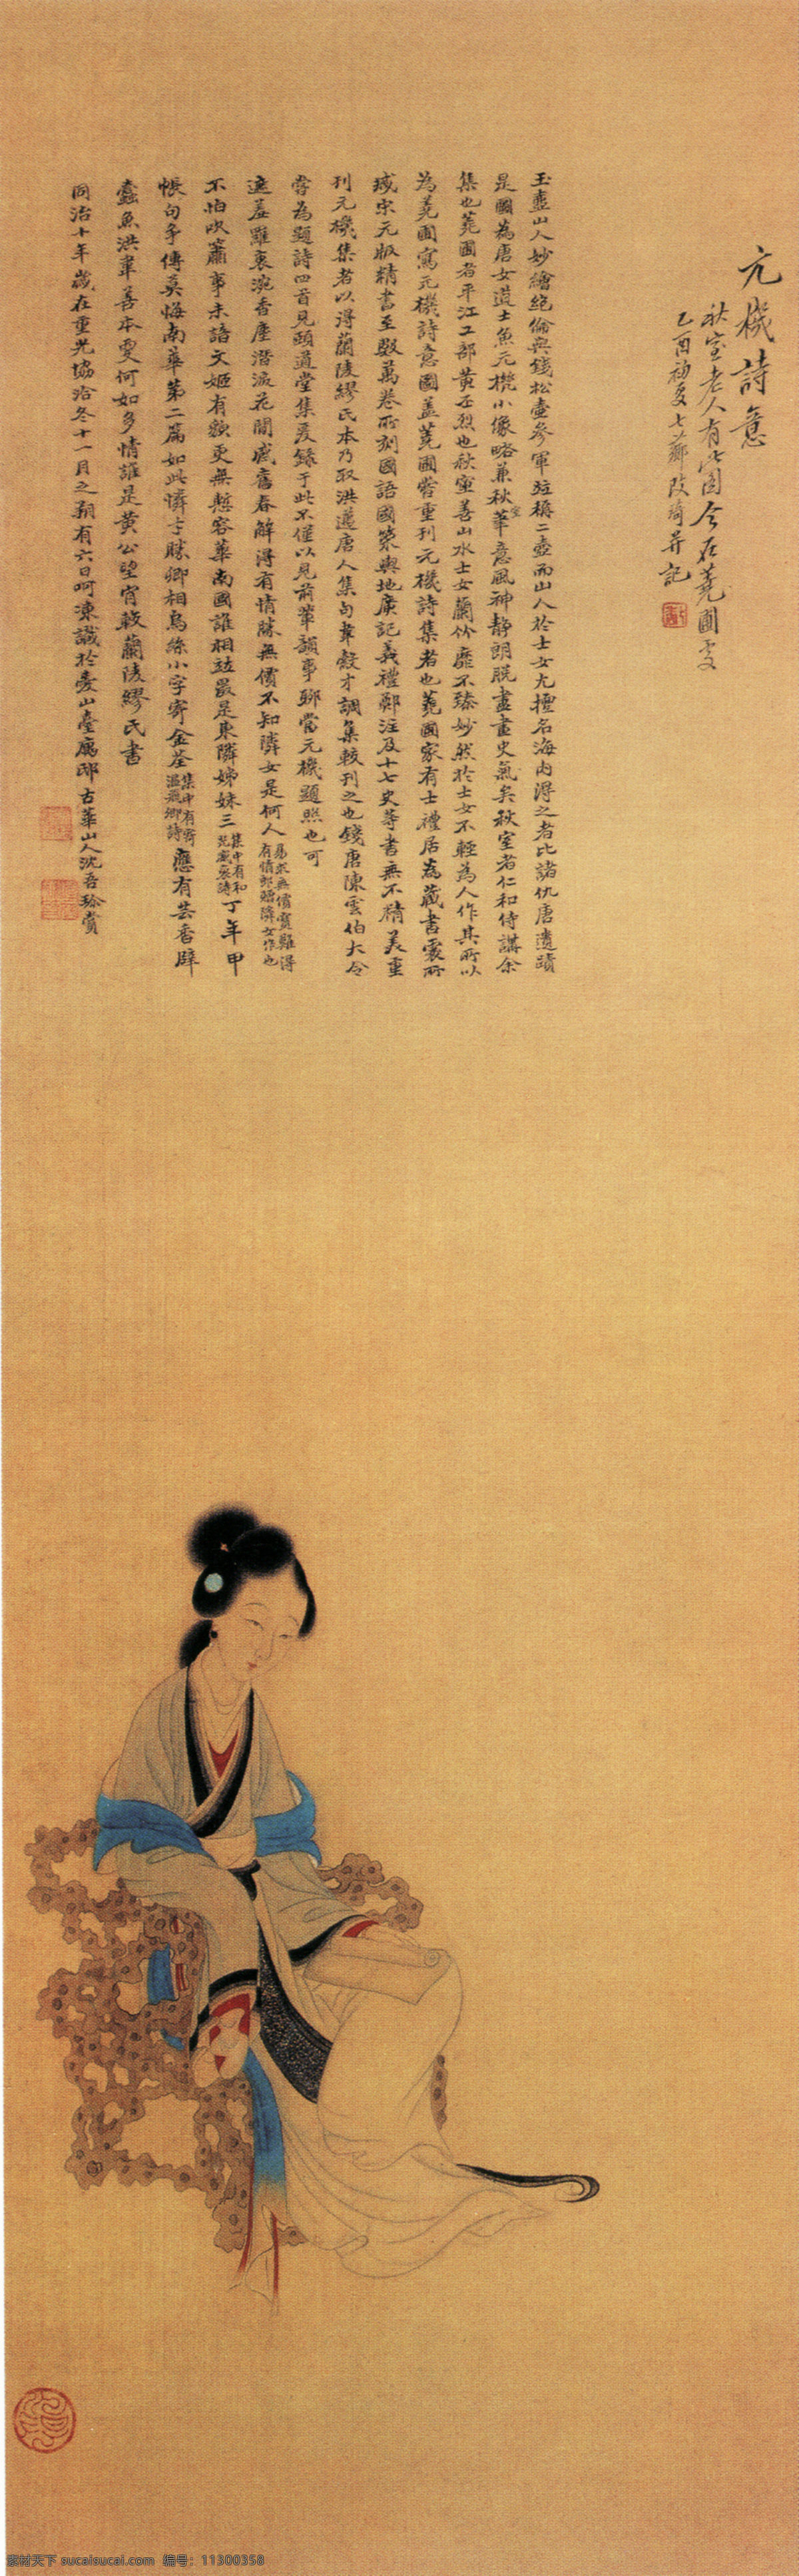 元機詩意
秋室老人有此圖今在蕘圃處
乙酉初夏七薌改琦并記
玉壺山人妙繪絕倫與錢松壺參軍竝稱二壺而山人於士女尤擅名海內得之者比諸仇唐遺蹟
是圖為唐女道士魚元機小像略兼秋室華意風神靜朗脫盡畫史氣矣秋室者仁和侍講余
集也蕘圃者平江工部黃丕烈也秋室善山水士女蘭竹靡不臻妙然於士女不輕為人作其所以
為蕘圃寫元機詩意圖蓋蕘圃嘗重刊元機詩集者也蕘圃家有士禮居為藏書處所
臧宋元版精書至數萬卷所刻國語國策輿地廣記義禮鄭注及十七史等書無不精美重
刊元機集者以得蘭陵繆氏本乃取洪邁唐人集句韋縠才調集較刊之也錢唐陳雲伯大令
嘗為題詩四首見頤道堂集爰錄于此不僅以見前輩韻事聊當元機題照也可
遮羞羅裹涴香塵潛派花間感舊春解得有情勝無價不知隣女是何人易求無價寶難得有情郎贈隣女作也
不怕吹簫事未諳文姬有額更無慙容華南國誰相竝最是東隣姊妹三集中有和光威裒詩丁年甲
帳句爭傳莫悔南華第二篇如此憐才勝卿相烏絲小字寄金荃集中有寄溫飛卿詩應有芸香辟
蠹魚洪韋善本更何如多情誰是黃公望宵較蘭陵繆氏書
同治十年歲在重光協洽冬十一月之朔有六日呵凍識於愛山臺寓邸古華山人沈吾珍賞
素材天下 sucaisucai.com 编号：11300358